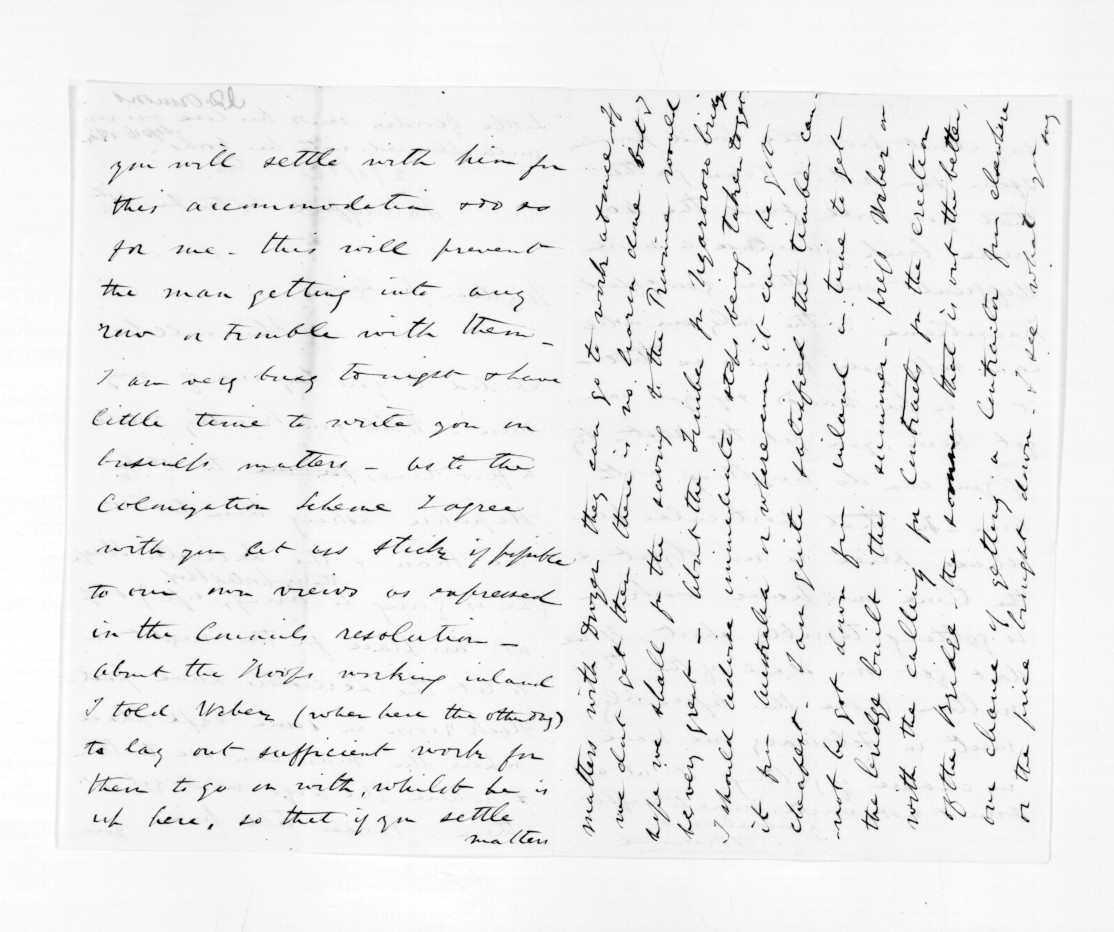 you will settle with him for
this accommodation & do so
for me - this will prevent
the man getting into any
row or trouble with them -
I am very busy to night & have
little time to write you on
business matters - as to the
Colonization Scheme I agree
with you let us stick if possible
to our own views as expressed
in the Councils resolution -
about the Troops working inland
I told Weber (when here the other day)
to lay out sufficient work for
them to go on with, whilst he is
up here, so that if you settle
matters
matters with them they can go to work at once if
we dont get them there is no harm done but I
hope we shall for the saving to the Province would
be very great - Abt the Timber for Ngaroro bridge
I should advise immediate steps being taken to get
it from Australia or wherever it can be got
cheapest - I am quite satisfied the timber can
not be got down from inland in time to get
the bridge built this summer - press Weber on
with the calling for Contracts for the erection
of the Bridge the sooner that is out the better,
our chance of getting a Contractor from elsewhere
or the price brought down - I see what you say